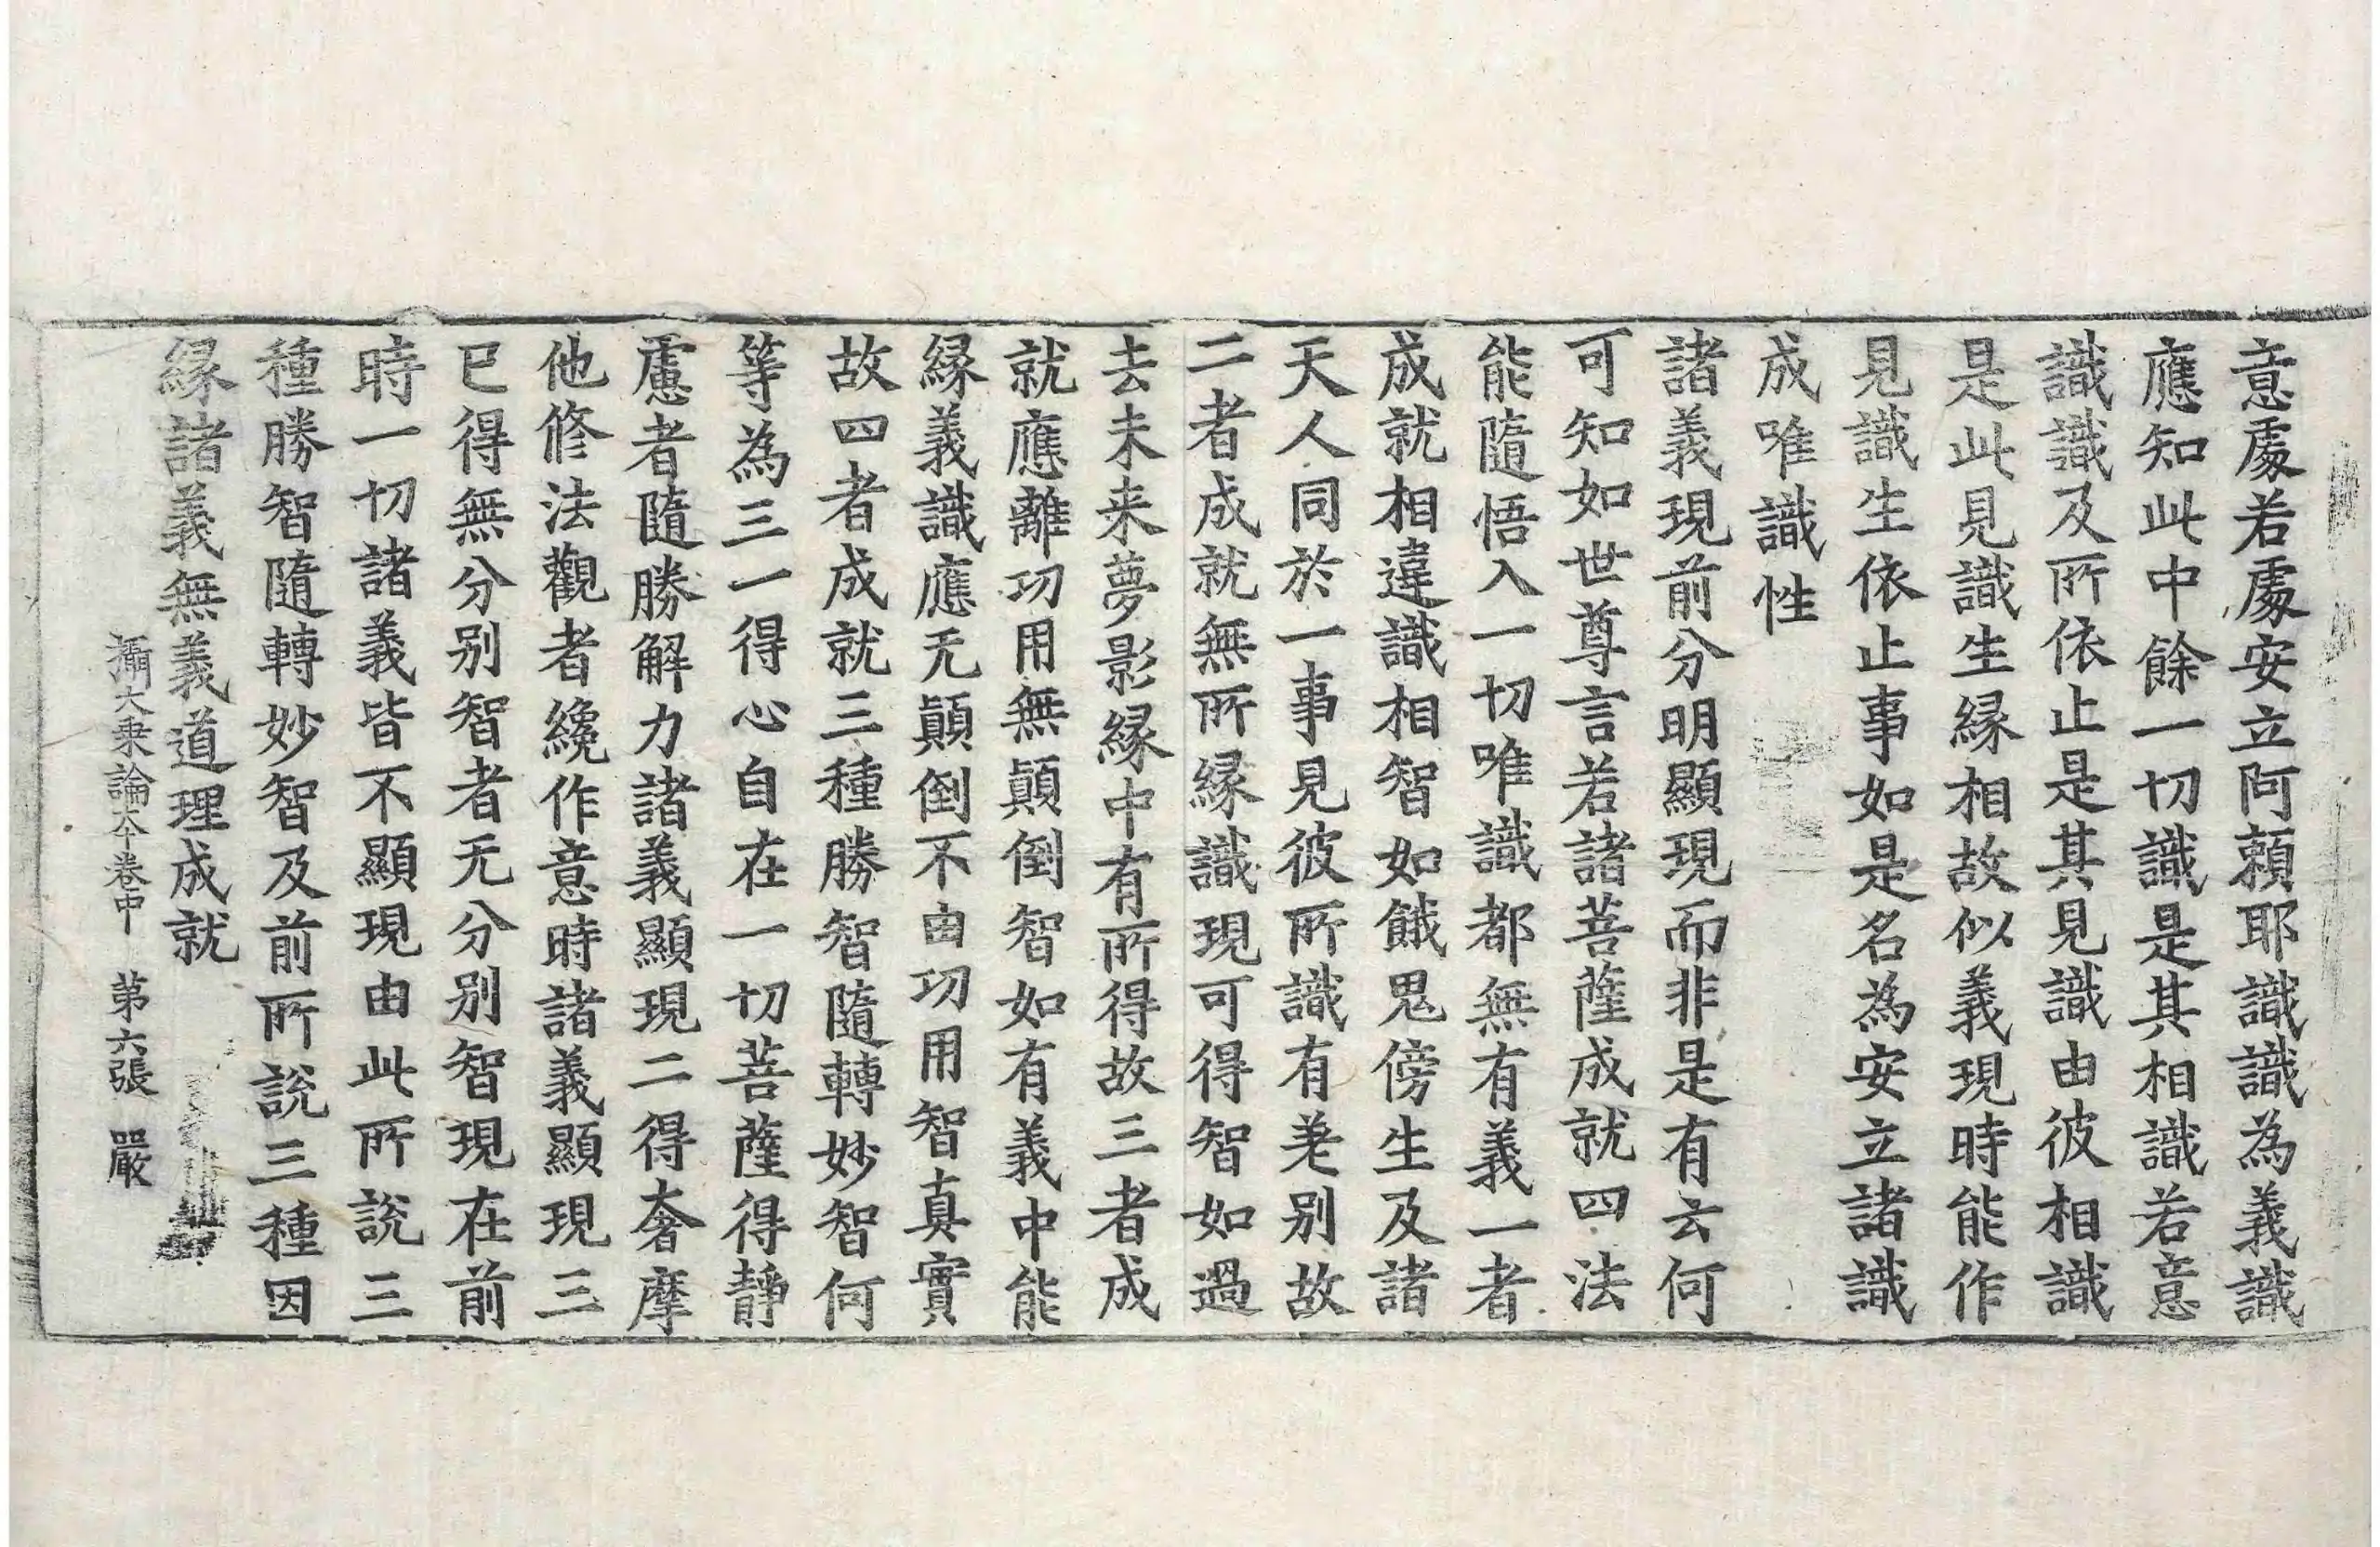 意處若處安立阿頼耶識識為義識
應知此中餘一切識是其相識若意
識識及所依止是其見識由彼相識
是此見識生緣相故似義現時能作
見識生依止事如是名為安立諸識
成唯識性
諸義現前分明顯現而非是有云何
可知如世尊言若諸菩薩成就四法
能隨悟入一切唯識都無有義一者
成就相違識相智如餓鬼傍生及諸
天人同於一事見彼所識有差別故
二者成就無所緣識現可得智如過
去未来夢影緣中有所得故三者成
就應離功用無顛倒智如有義中能
緣義識應无顛倒不由功用智真實
故四者成就三種勝智隨轉妙智何
等為三一得心自在一切菩薩得靜
慮者隨勝解力諸義顯現二得奢摩
他修法觀者纔作意時諸義顯現三
已得無分别智者无分别智現在前
時一切諸義皆不顯現由此所說三
種勝智隨轉妙智及前所說三種因
緣諸義無義道理成就
攝大乗論本卷中 第六張 嚴